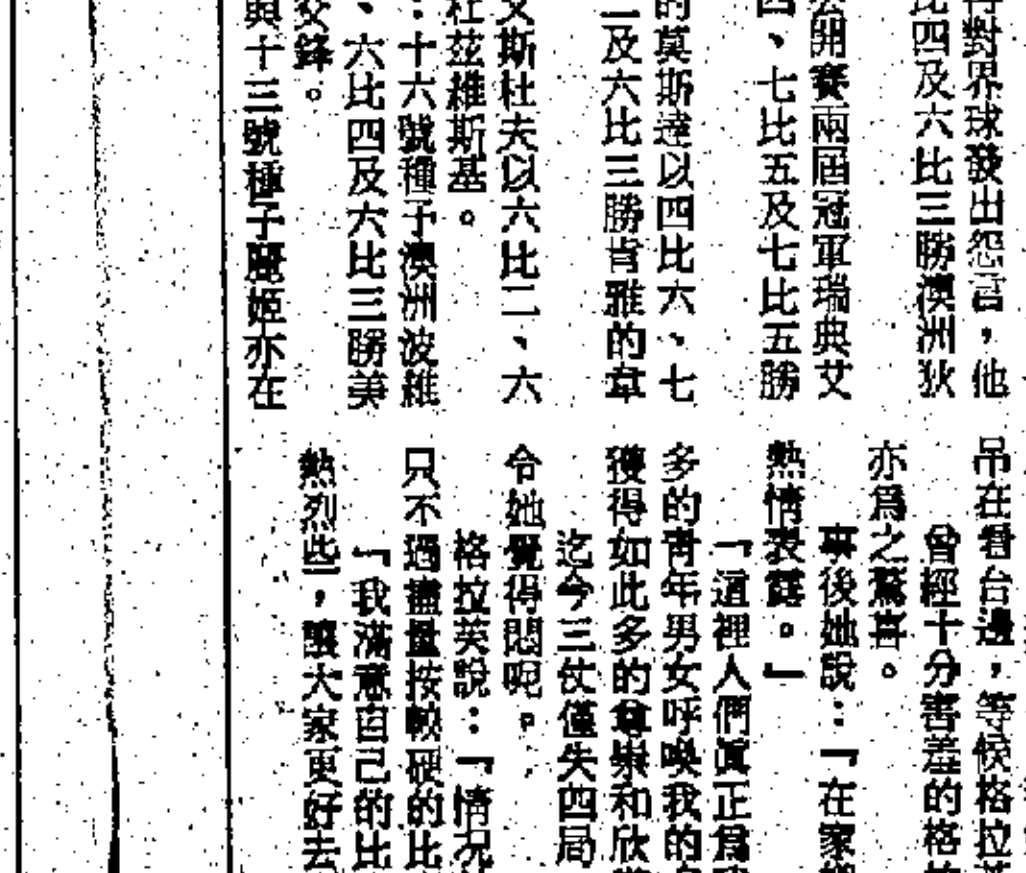 對界球發出怨言，他
比四及六比三勝澳洲狄
公開賽兩屆冠軍瑞典艾
四、七比五及七比五勝
的莫斯達以四比六、七
二及六比三勝肯雅的韋
艾斯杜夫以六比二、六
杜茲維斯基。
：十六號種子澳洲波維
、六比四及六比三勝美
交鋒。
與十三號種子龐姬亦在
吊在看台邊，等候格拉英
曾經十分害羞的格拉
亦爲之驚喜。
事後她說：「在家鄉
熱情表露。」
「這裡人們眞正爲
多的青年男女呼喚我的
獲得如此多的尊崇和欣
迄今三仗僅失四局
令她覺得悶呢。
格拉英說：「情況
只不過儘量按較硬的比
「我滿意自己的比
熱烈些，讓大家更好去